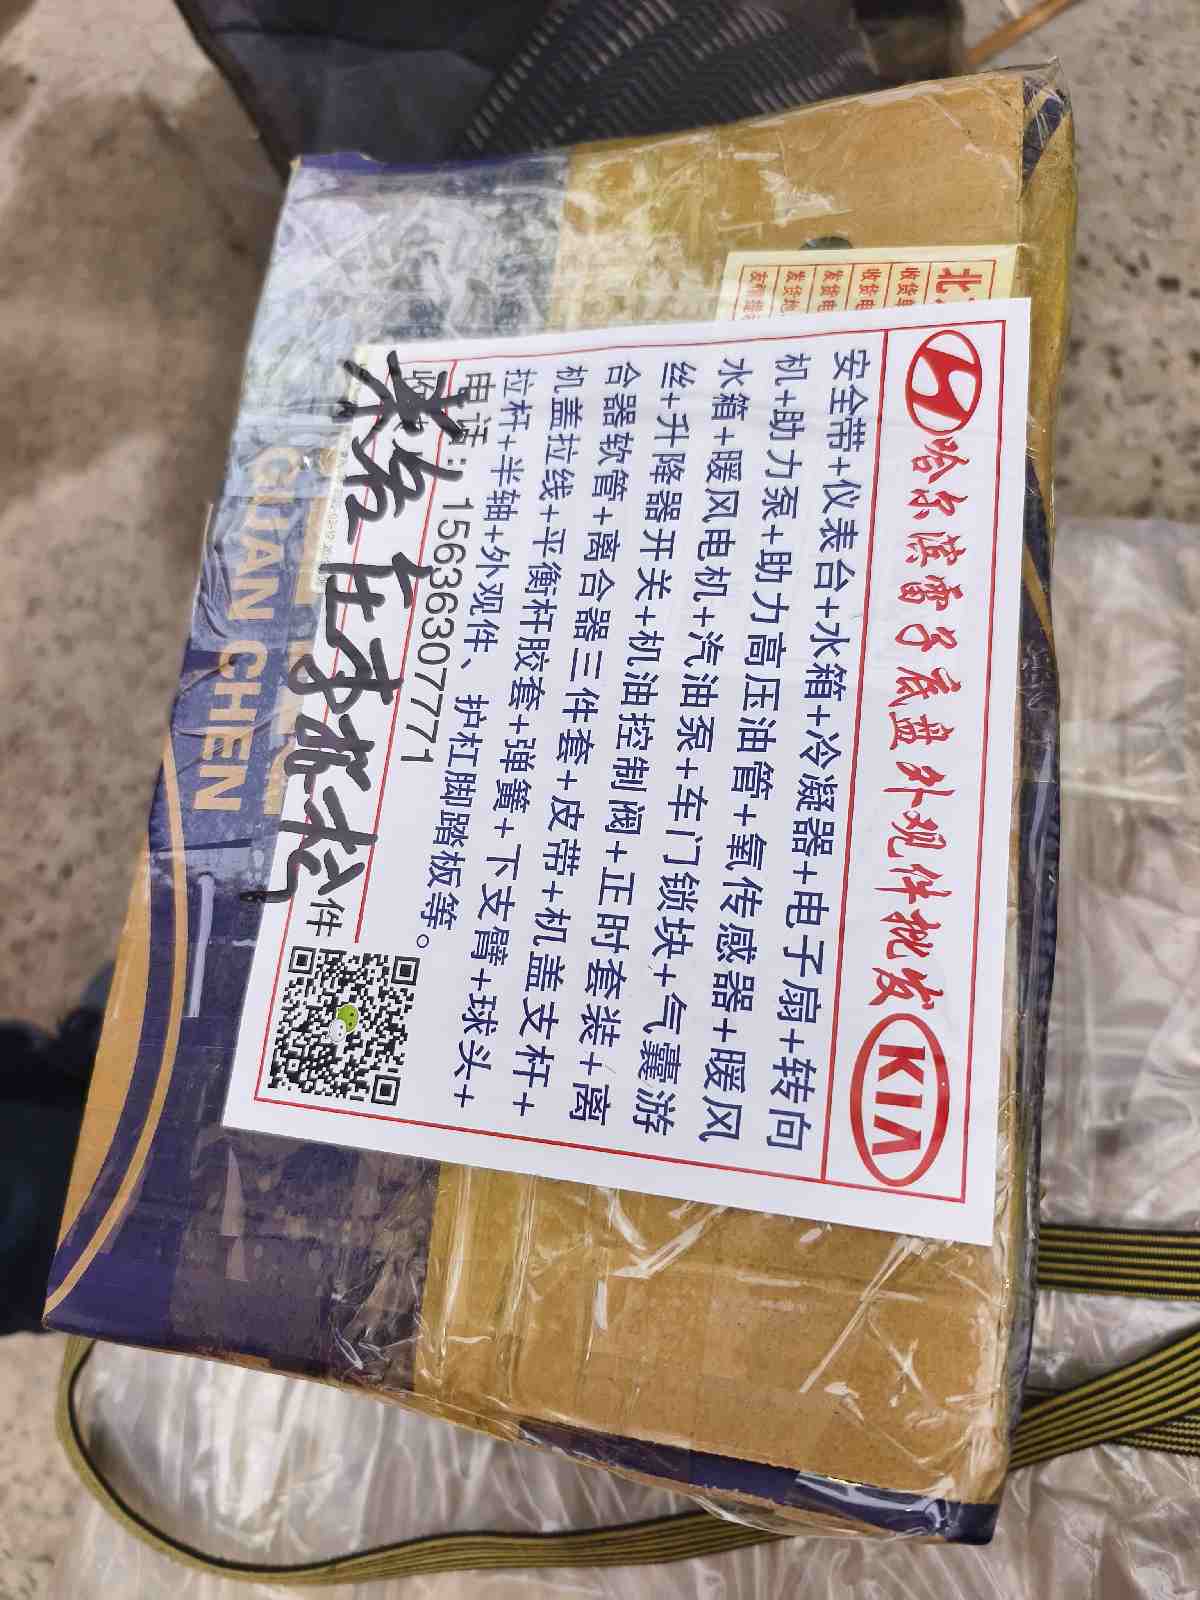 哈尔滨雷子底盘外观件批发
KIA
安全带+仪表台+水箱+冷凝器+电子扇+转向
机+助力泵+助力高压油管+氧传感器+暖风
水箱+暖风电机+汽油泵+车门锁块+气囊游
丝+升降器开关+机油控制阀+正时套装+离
合器软管+离合器三件套+皮带+机盖支杆+
机盖拉线+平衡杆胶套+弹簧+下支臂+球头+
拉杆+半轴+外观件、护杠脚踏板等。
电话：15636307771
件
北
收货
收货电
发货电
发货地
GUAN CHEN